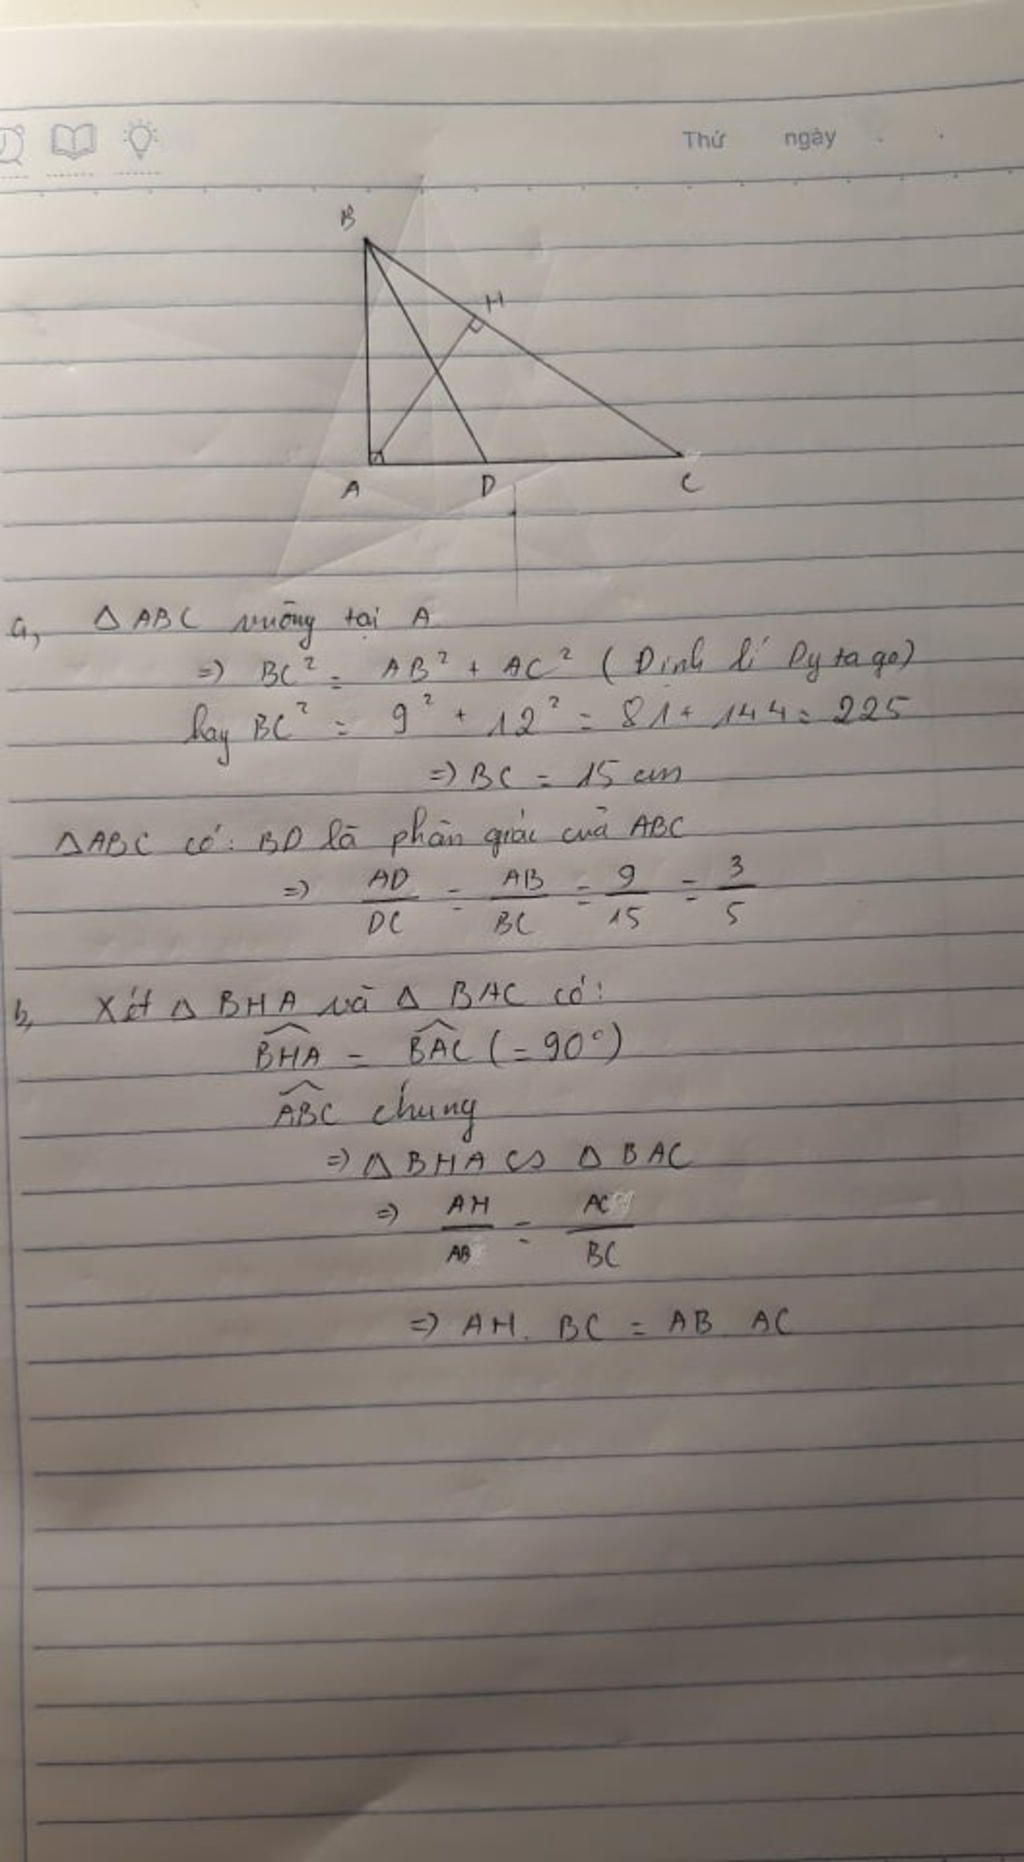 Thứ ngày
B
H
A D C
a, △ABC vuông tại A
=> BC² = AB² + AC² (Định lí Pytago)
hay BC² = 9² + 12² = 81 + 144 = 225
=> BC = 15 cm
△ABC có: BD là phân giác của ABC
=> AD/DC = AB/BC = 9/15 = 3/5
b, Xét △BHA và △BAC có:
\widehat{BHA} = \widehat{BAC} (= 90°)
\widehat{ABC} chung
=> △BHA ∽ △BAC
=> AH/AB = AC/BC
=> AH. BC = AB AC